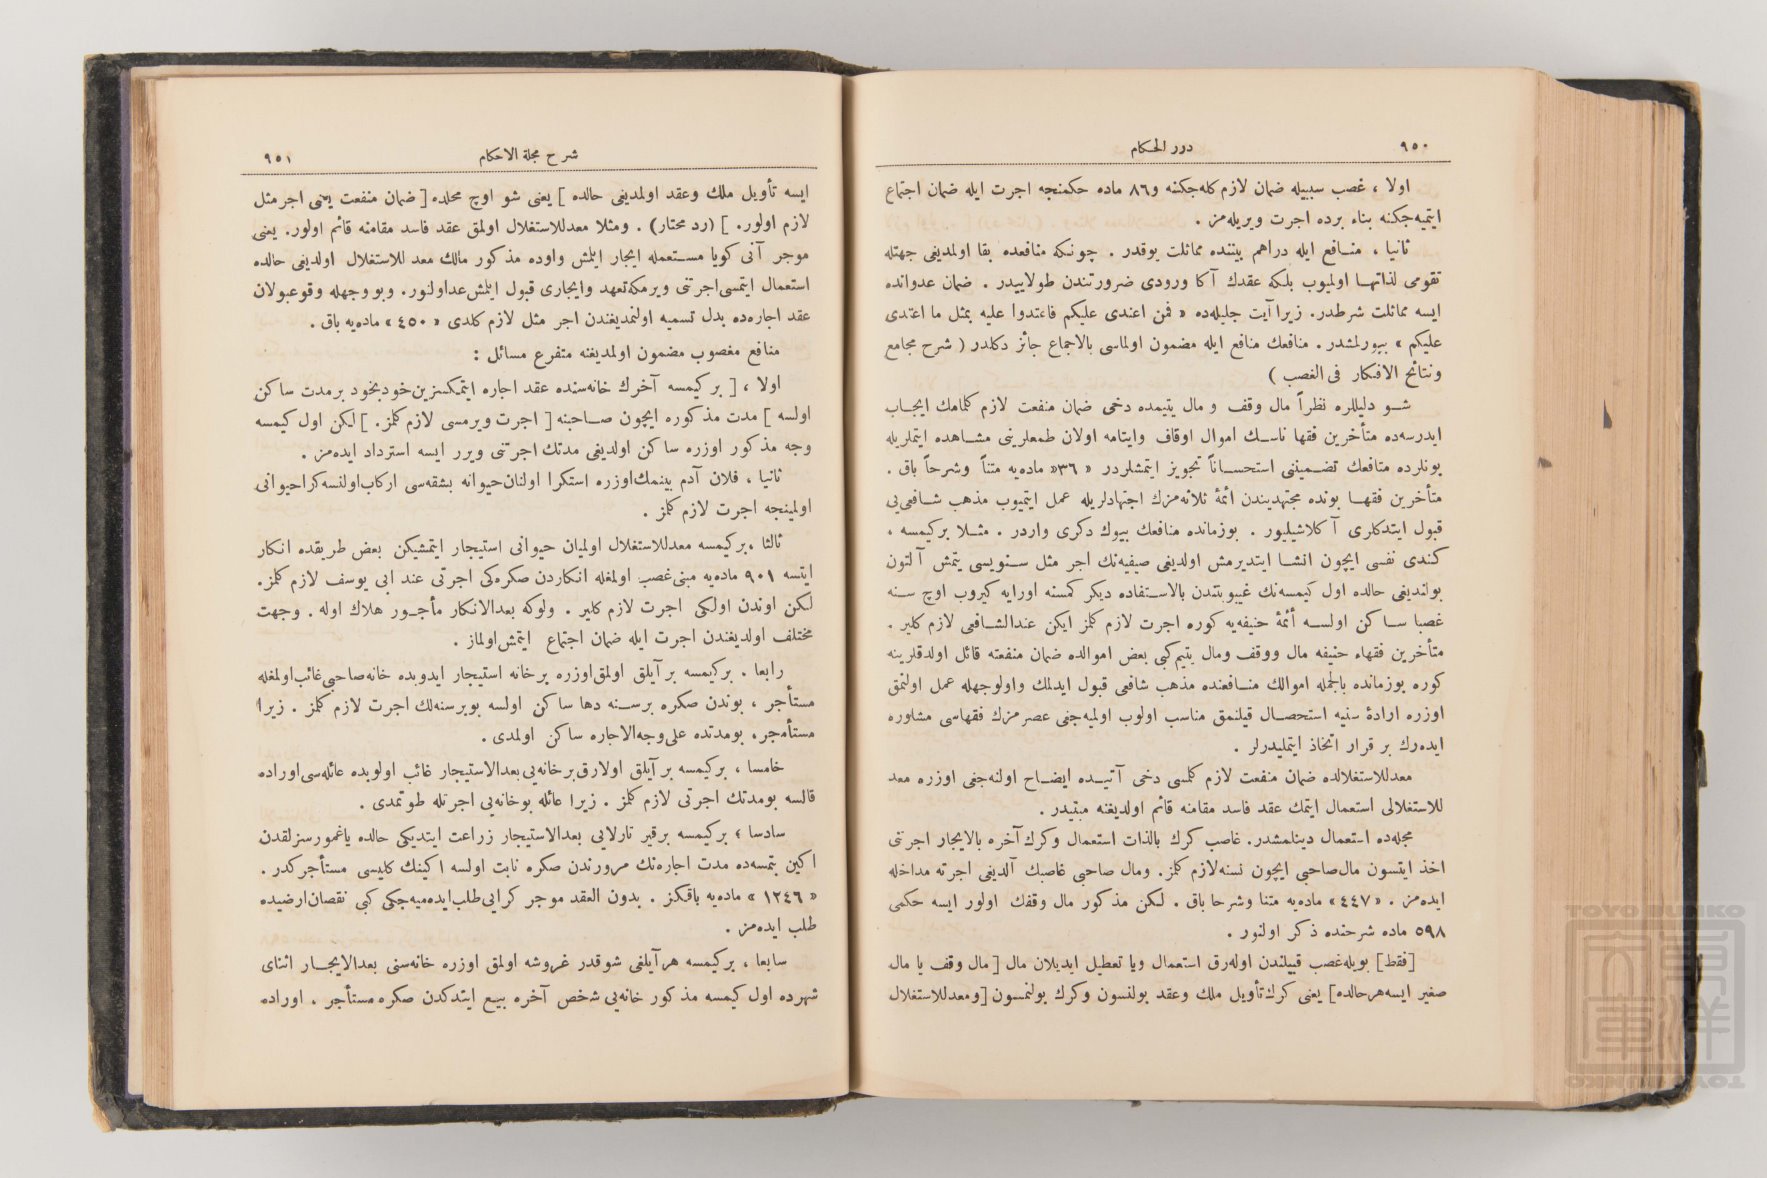 ٩٥٠
درر الحكام
اولا ، غصب سببيله ضمان لازم كله جكنه و٨٦ ماده حكمنجه اجرت ايله ضمان اجتماع
ايتميه جكنه بناء برده اجرت ويريله مز .
ثانيا ، منافع ايله دراهم بيننده مماثلت يوقدر . چونكه منافعده بقا اولمديغى جهتله
تقومى لذاتها اولميوب بلكه عقدك آكا ورودى ضرورتندن طولاييدر . ضمان عدوانده
ايسه مماثلت شرطدر. زيرا آيت جليله ده « فمن اعتدى عليكم فاعتدوا عليه بمثل ما اعتدى
عليكم » بيورلمشدر . منافعك منافع ايله مضمون اولماسى بالاجماع جائز دكلدر ( شرح مجامع
ونتائج الافكار فى الغصب )
شو دليللره نظراً مال وقف و مال يتيمده دخى ضمان منفعت لازم كلمامك ايجاب
ايدرسه ده متأخرين فقها ناسك اموال اوقاف وايتامه اولان طمعلرينى مشاهده ايتملريله
بونلرده منافعك تضمينى استحساناً تجويز ايتمشلردر « ٣٦» ماده يه متناً وشرحاً باق .
متأخرين فقها بونده مجتهديندن ائمۀ ثلاثه مزك اجتهادلريله عمل ايتميوب مذهب شافعى يى
قبول ايتدكلرى آكلاشيليور . بوزمانده منافعك بيوك دكرى واردر . مثلا بركيمسه ،
كندى نفسى ايچون انشا ايتديرمش اولديغى صيفيه نك اجر مثل سنويسى يتمش آلتون
بولنديغى حالده اول كيمسه نك غيبوبتندن بالاستفاده ديكر كمسنه اورايه كيروب اوچ سنه
غصبا ساكن اولسه أئمۀ حنيفه يه كوره اجرت لازم كلمز ايكن عندالشافعى لازم كلير .
متأخرين فقهاء حنيفه مال ووقف ومال يتيم كبى بعض اموالده ضمان منفعته قائل اولدقلرينه
كوره بوزمانده بالجمله اموالك منافعنده مذهب شافعى قبول ايدلمك واولوجهله عمل اولنمق
اوزره ارادۀ سنيه استحصال قيلنمق مناسب اولوب اولميه جغى عصر مزك فقهاسى مشاوره
ايده رك بر قرار اتخاذ ايتمليدرلر .
معدللاستغلالده ضمان منفعت لازم كلمسى دخى آتيده ايضاح اولنه جغى اوزره معد
للاستغلالى استعمال ايتمك عقد فاسد مقامنه قائم اولديغنه مبتيدر .
مجله ده استعمال دينلمشدر. غاصب كرك بالذات استعمال وكرك آخره بالايجار اجرتنى
اخذ ايتسون مال صاحبى ايچون نسنه لازم كلمز. ومال صاحبى غاصبك آلديغى اجرته مداخله
ايده مز . «٤٤٧» ماده يه متنا وشرحا باق . لكن مذكور مال وقفك اولور ايسه حكمى
٥٩٨ ماده شرحنده ذكر اولنور .
[فقط] بويله غصب قبيلندن اوله رق استعمال ويا تعطيل ايديلان مال [ مال وقف يا مال
صغير ايسه هر حالده] يعنى كرك تأويل ملك وعقد بولنسون وكرك بولنمسون [ ومعدللاستغلال
شرح مجلة الاحكام
٩٥١
ايسه تأويل ملك وعقد اولمديغى حالده ] يعنى شو اوچ محلده [ ضمان منفعت يعنى اجر مثل
لازم اولور. ] (رد محتار) . ومثلا معدللاستغلال اولمق عقد فاسد مقامنه قائم اولور. يعنى
موجر آنى كويا مستعمله ايجار ايلمش واوده مذكور مالك معد للاستغلال اولديغى حالده
استعمال ايتمسى اجرتنى ويرمكه تعهد وايجارى قبول ايلمش عد اولنور. وبووجهله وقوعبولان
عقد اجاره ده بدل تسميه اولنمديغندن اجر مثل لازم كلدى « ٤٥٠ » ماده يه باق .
منافع مغصوب مضمون اولمديغنه متفرع مسائل :
اولا ، [ بر كيمسه آخرك خانه سنده عقد اجاره ايتمكسزين خود بخود بر مدت ساكن
اولسه ] مدت مذكوره ايچون صاحبنه [ اجرت ويرمسى لازم كلمز . ] لكن اول كيمسه
وجه مذكور اوزره ساكن اولديغى مدتك اجرتنى ويرر ايسه استرداد ايده مز .
ثانيا ، فلان آدم بينمك اوزره استكرا اولنان حيوانه بشقه سى اركاب اولنسه كرا حيوانى
اولمينجه اجرت لازم كلمز .
ثالثا ، بركيمسه معدللاستغلال اولميان حيوانى استيجار ايتمشيكن بعض طريقده انكار
ايتسه ٩٠١ ماده يه مبنى غصب اولمغله انكاردن صكره كى اجرتى عند ابى يوسف لازم كلمز.
لكن اوندن اولكى اجرت لازم كلير . ولوكه بعد الانكار مأجور هلاك اوله . وجهت
مختلف اولديغندن اجرت ايله ضمان اجتماع ايتمش اولماز .
رابعا . بركيمسه بر آيلق اولمق اوزره برخانه استيجار ايدوبده خانه صاحبى غائب اولمغله
مستأجر ، بوندن صكره بر سنه دها ساكن اولسه بوبرسنه لك اجرت لازم كلمز . زيرا
مستأجر، بومدتده على وجه الاجاره ساكن اولمدى .
خامسا ، بركيمسه بر آيلق اولارق برخانه يى بعد الاستيجار غائب اولوبده عائله سى اوراده
قالسه بومدتك اجرتى لازم كلمز . زيرا عائله بوخانه يى اجرتله طوتمدى .
سادسا ، بركيمسه برقير تارلايى بعد الاستيجار زراعت ايتديكى حالده ياغمورسزلقدن
اكين بتمسه ده مدت اجاره نك مرورندن صكره نابت اولسه اكينك كليسى مستأجركدر .
« ١٢٤٦ » ماده يه باقكز . بدون العقد موجر كرايى طلب ايده ميه جكى كبى نقصان ارضيده
طلب ايده مز .
سابعا ، بركيمسه هر آيلغى شوقدر غروشه اولمق اوزره خانه سنى بعد الايجار اثناى
شهرده اول كيمسه مذكور خانه يى شخص آخره بيع ايتدكدن صكره مستأجر ، اوراده
TOYO BUNKO
東洋文庫
TOYO BUNKO